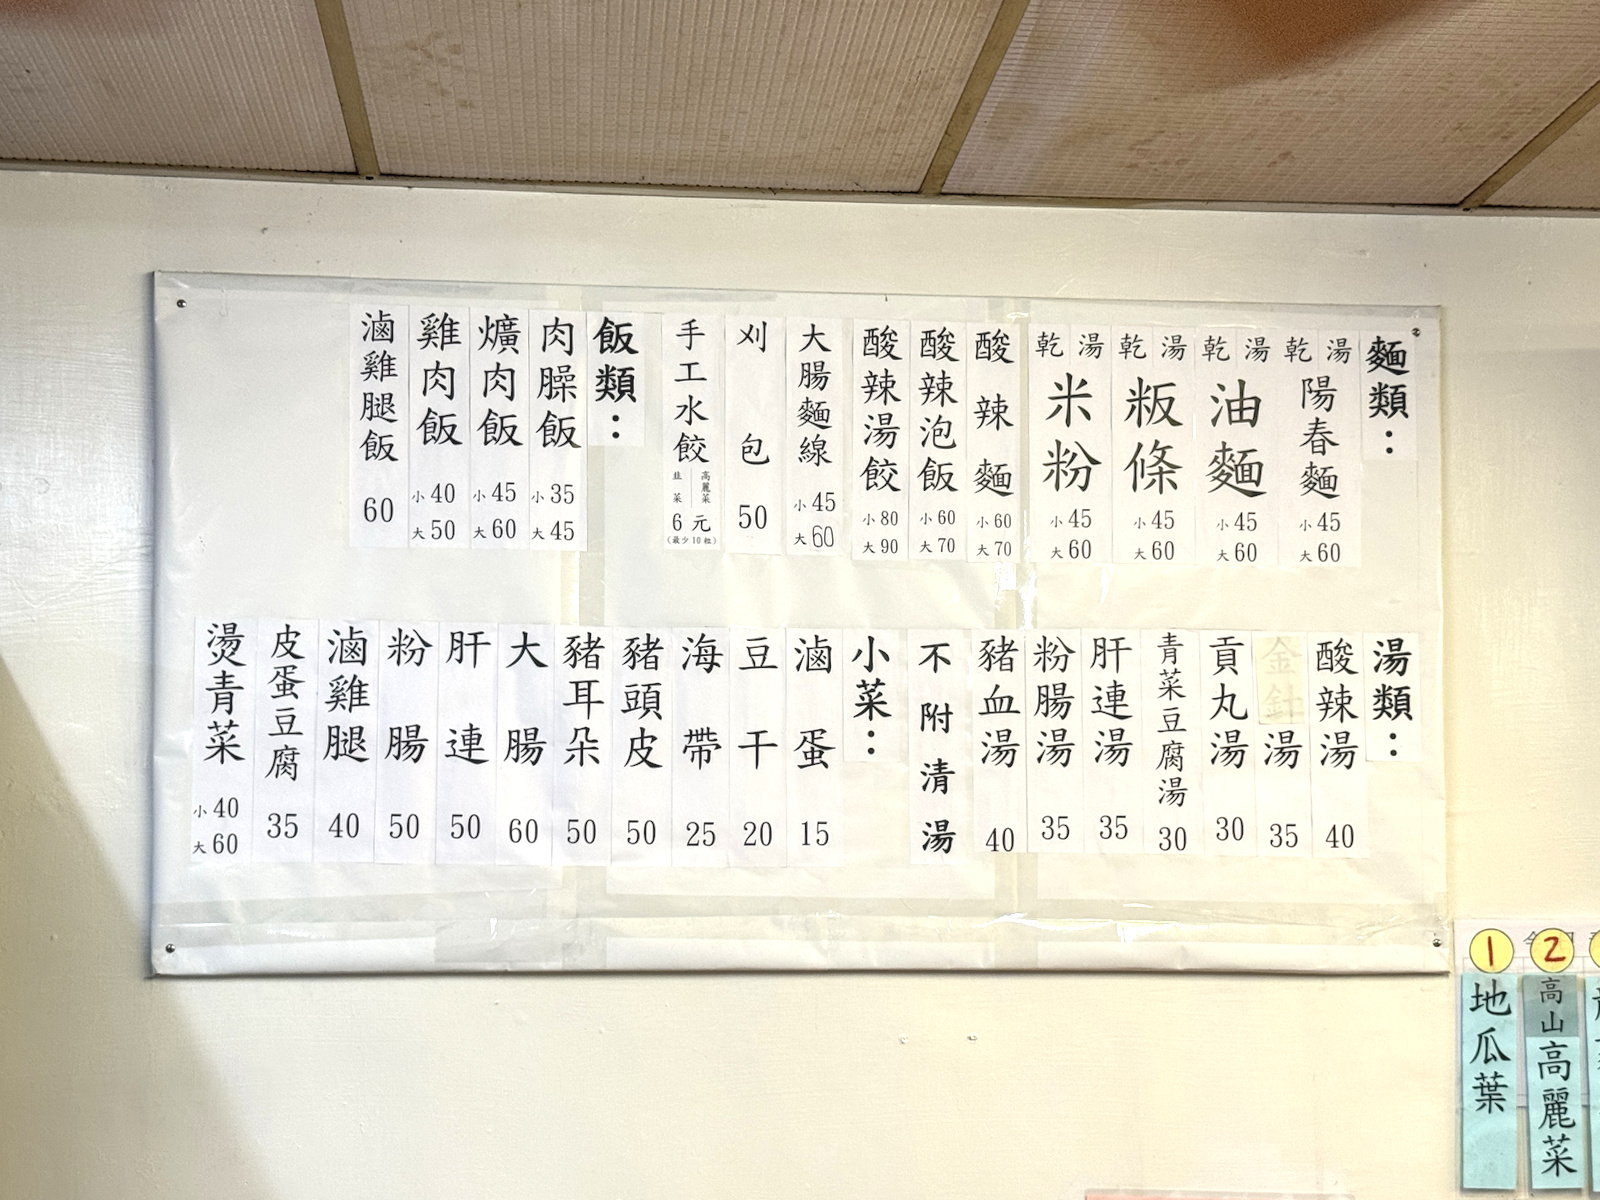 麵類：
湯 乾 陽春麵 小45 大60
湯 乾 油麵 小45 大60
湯 乾 粄條 小45 大60
湯 乾 米粉 小45 大60
酸辣麵 小60 大70
酸辣泡飯 小60 大70
酸辣湯餃 小80 大90
大腸麵線 小45 大60
刈包 50
手工水餃 高麗菜 韭菜 6元 (最少10粒)
飯類：
肉臊飯 小35 大45
爌肉飯 小45 大60
雞肉飯 小40 大50
滷雞腿飯 60
湯類：
酸辣湯 40
金針湯 35
貢丸湯 30
青菜豆腐湯 30
肝連湯 35
粉腸湯 35
豬血湯 40
不附清湯
小菜：
滷蛋 15
豆干 20
海帶 25
豬頭皮 50
豬耳朵 50
大腸 60
肝連 50
粉腸 50
滷雞腿 40
皮蛋豆腐 35
燙青菜 小40 大60
1 地瓜葉
2 高山高麗菜